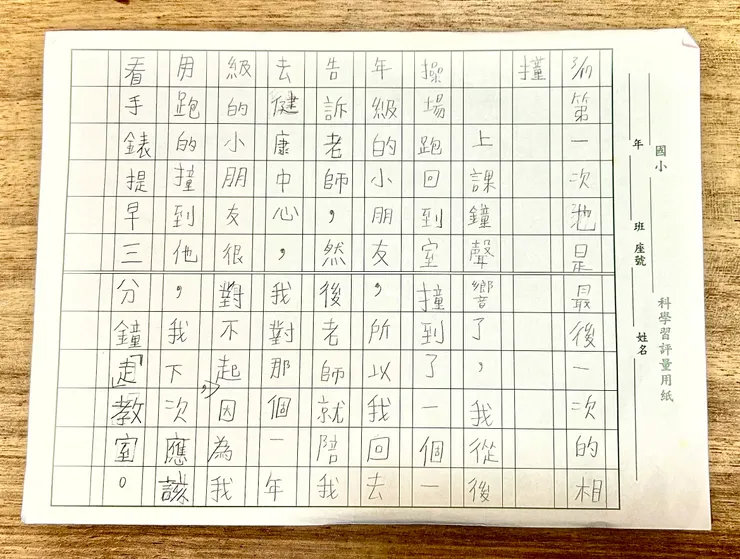 國小
年 班 座號 姓名
科學習評量用紙
第一次也是最後一次的相
撞
上課鐘聲響了，我從後
操場跑回到室撞到了一個一
年級的小朋友，所以我回去
告訴老師，然後老師就陪我
去健康中心，我對那個一年
級的小朋友很對不起，因為我
用跑的撞到他，我下次應該
看手錶提早三分鐘「走」教室。